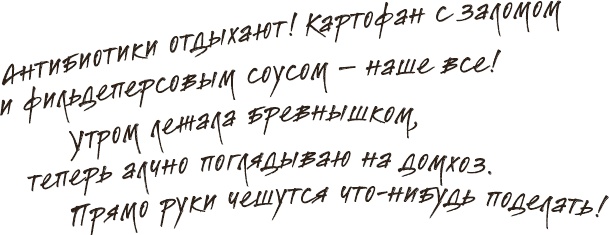 Антибиотики отдыхают! Картофан с заломом
и фильдеперсовым соусом – наше все!
Утром лежала бревнышком,
теперь алчно поглядываю на домхоз.
Прямо руки чешутся что-нибудь поделать!